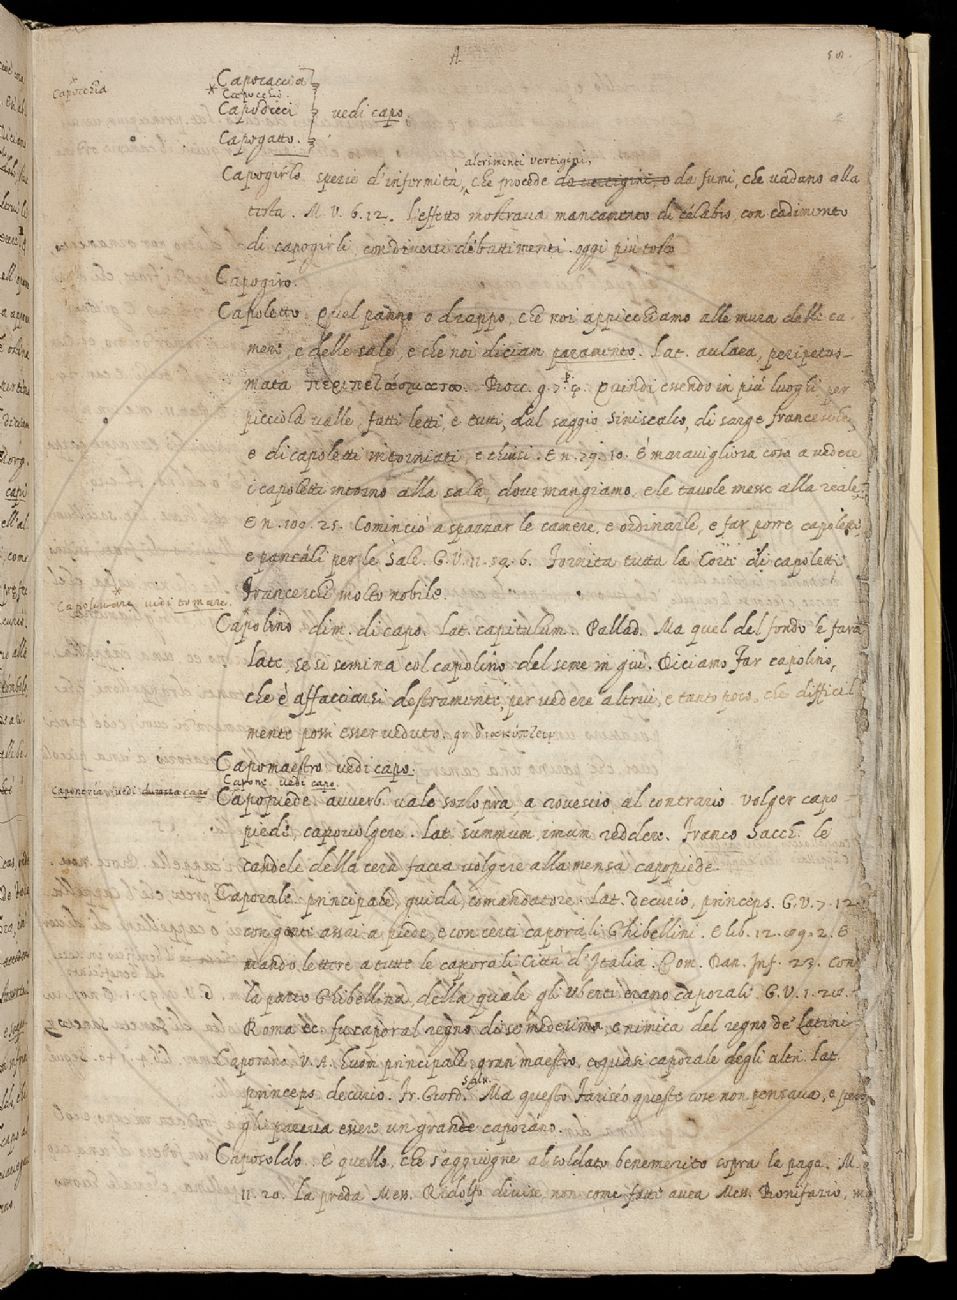 A
58.
Capocchia
Capocaccia
Capocchio.
Capodieci vedi capo.
Capogatto.
altrimenti vertigini,
Capogirlo. spezie d'infermità, che procede da vertigini, o da fumi, che vadano alla
testa. M. V. 6. 12. L'effetto mostrava mancamento di celabro con cadimento
di capogirli con diversi dibattimenti. oggi più tosto
Capogiro.
Capoletto. Quel panno o drappo, che noi appicchiamo alle mura delle ca-
mere, e delle sale, e che noi diciam paramento. Lat. aulaea, peripetas-
mata Bocc. g. 7. p. 9. Quindi essendo in più luoghi per
picciola valle, fatti letti, e tutti, dal saggio siniscalco, di sarge francesche,
e di capoletti intorniati, e chiusi. E n. 79. 10. È maravigliosa cosa a vedere
i capoletti intorno alla sala, dove mangiamo, e le tavole messe alla reale.
E n. 100. 25. Cominciò a spazzar le camere, e ordinarle, e far porre capoletti,
e pancali per le sale. G. V. 11. 59. 6. Fornita tutta la Corte di capoletti
Franceschi molto nobile.
vedi tomare.
Capolino dim. di capo. Lat. capitulum. Pallad. Ma quel del fondo le farà
late, se si semina col capolino del seme in giù. Diciamo Far capolino,
che è affacciarsi destramente, per vedere altrui, e tanto poco, che difficil-
mente possi esser veduto. gr.
Capomaestro vedi capo.
Capone. vedi capo.
Caponeria. vedi
Capopiede. avverb. vale sozzopra, a rovescio, al contrario. Volger capo-
piede, capovolgere. Lat. summum imum reddere. Franco Sacch. le
candele della cera facea volgere alla mensa capopiede.
Caporale. principale, guida, comandatore. Lat. decurio, princeps. G. V. 7. 12
con genti assai a piede, e con certi caporali Ghibellini. E lib. 12. 89. 2. E
mando lettere a tutte le caporali Città d'Italia. Com. Dan. Inf. 23. Con
la parte Ghibellina, della quale gli Uberti erano caporali. G. V. 1.
Roma ec. fu caporal regno di se medesimo, e nimica del regno de' Latini.
Caporano. V. A. huom principale, gran maestro, e quasi caporale degli altri. Lat.
princeps decurio. Fr. Giord. Salv. Ma questo Fariseo queste cose non pensava, e però
gli pareva essere un grande caporano.
Caposoldo. È quello, che s'aggiugne al soldato benemerito sopra la paga. M.
11. 20. La preda Mess. Ridolfo divise, non come fatt' avea Mess. Bonifazio, ma